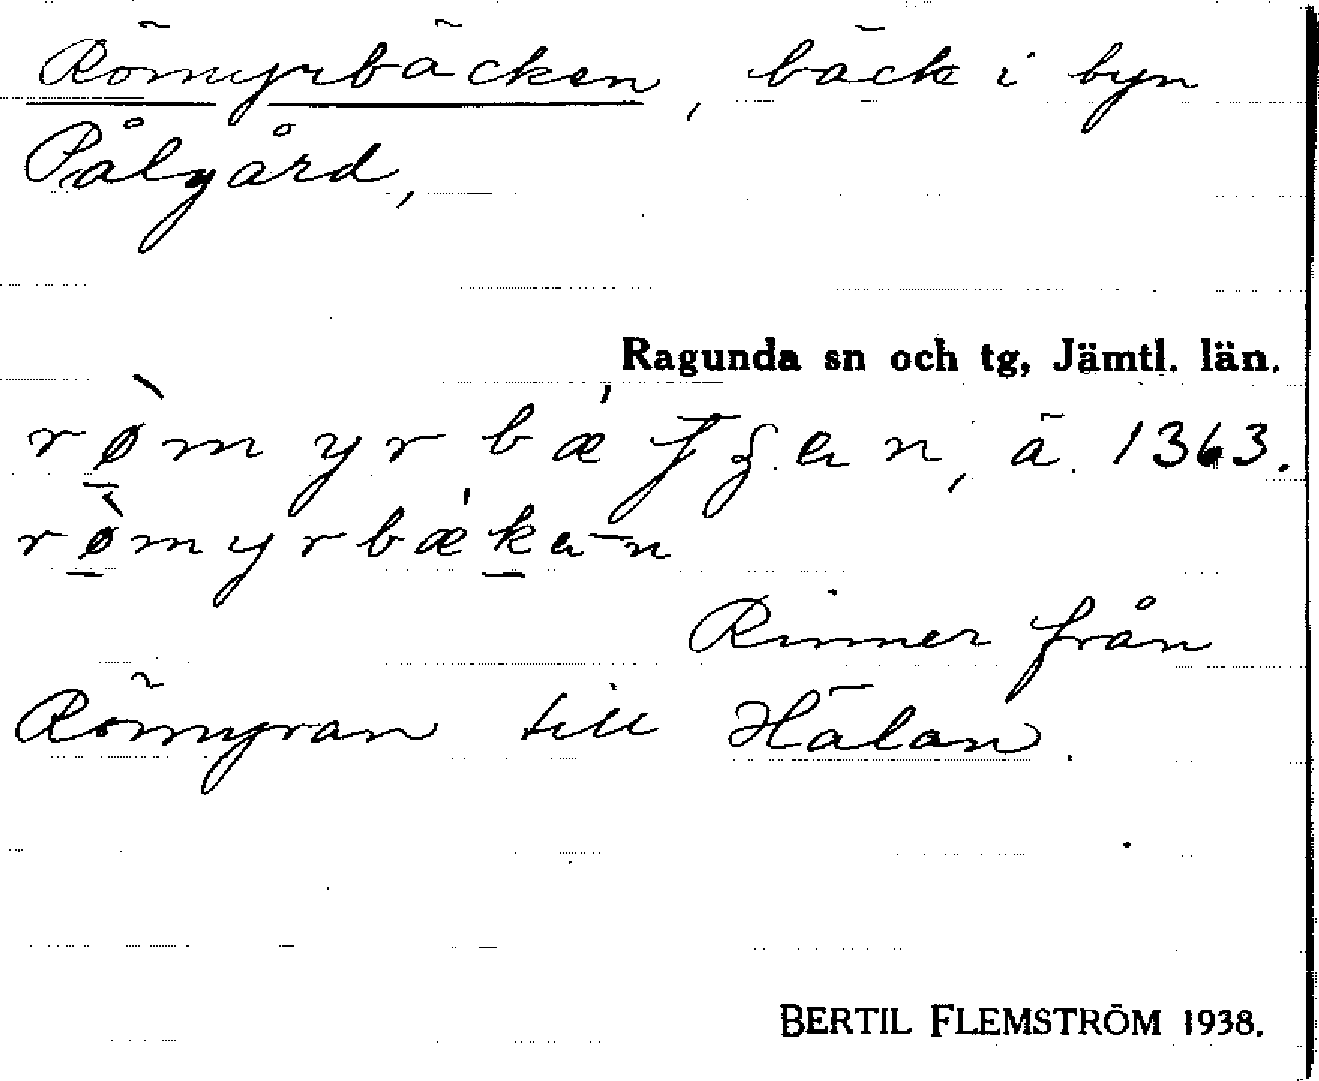 Römyrbäcken, bäck i byn
Pålgård,
Ragunda sn och tg, Jämtl. län.
rø̀myrbæ'
n, ä. 1363.
rø̀myrbæ'ken
Rinner från
Römyran till Hälan.
BERTIL FLEMSTRÖM 1938.